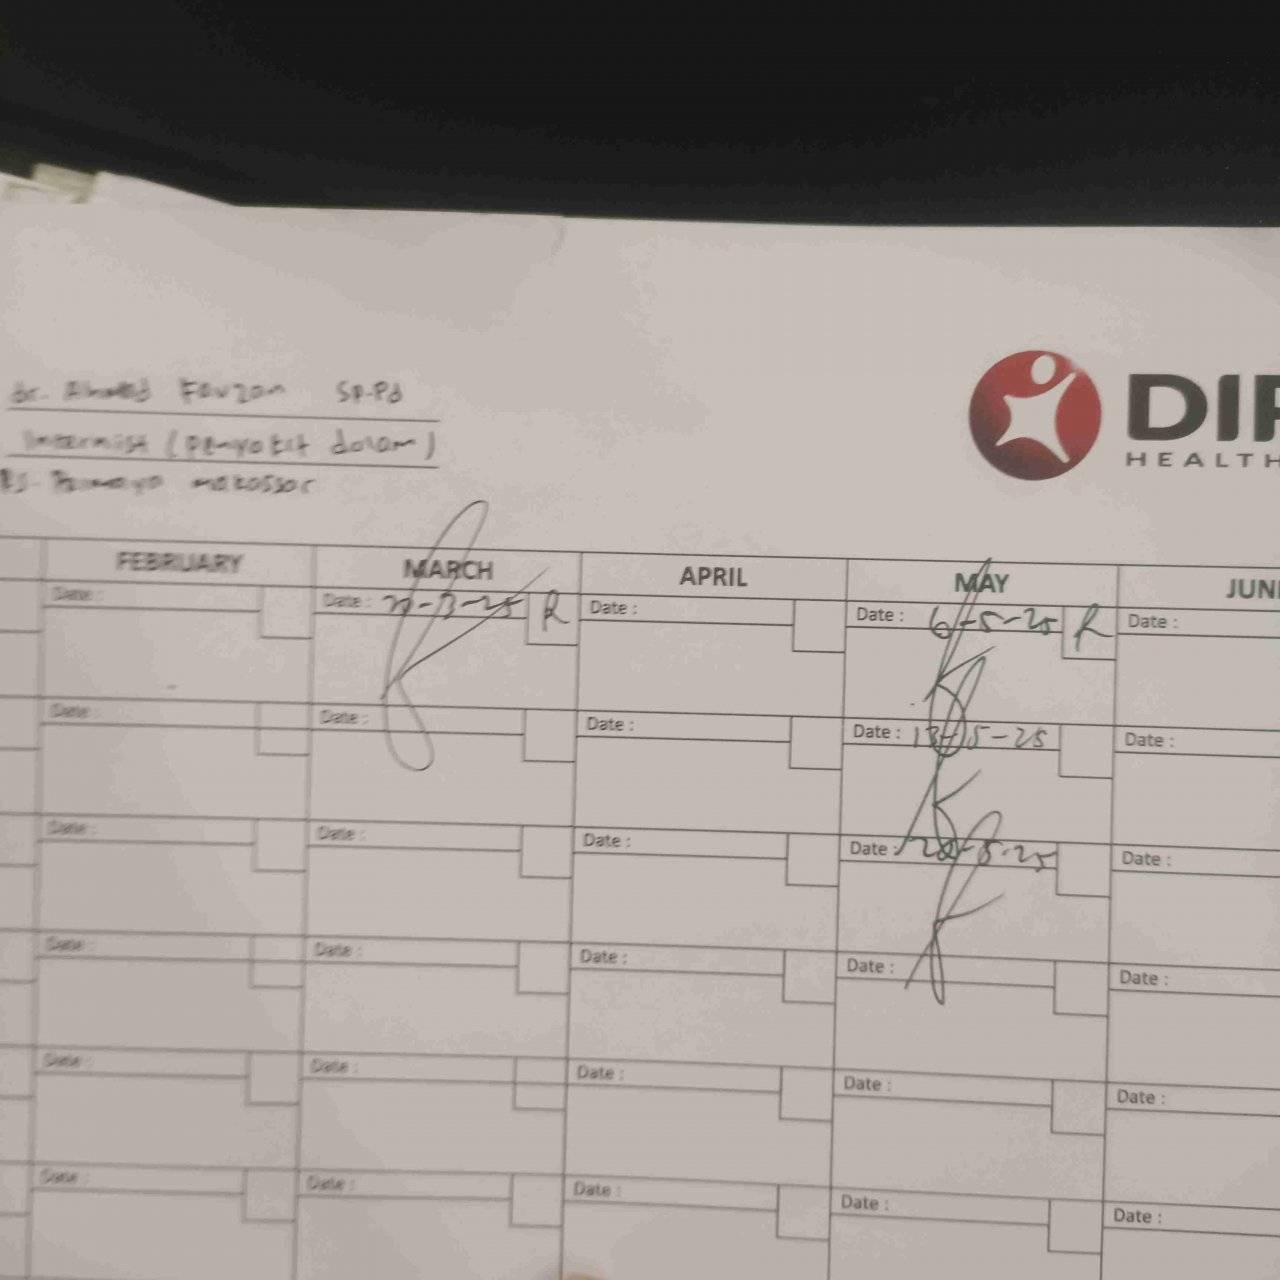 dr. Ahmad Fauzan Sp.Pd
Internist (penyakit dalam)
makassar
HEALTH
FEBRUARY MARCH APRIL MAY
Date : Date : R Date : Date : 6-5-25 R Date :
Date : Date : Date : Date : 13-5-25 Date :
Date : Date : Date : Date : Date :
Date : Date : Date : Date : Date :
Date : Date : Date : Date : Date :
Date : Date : Date : Date : Date :